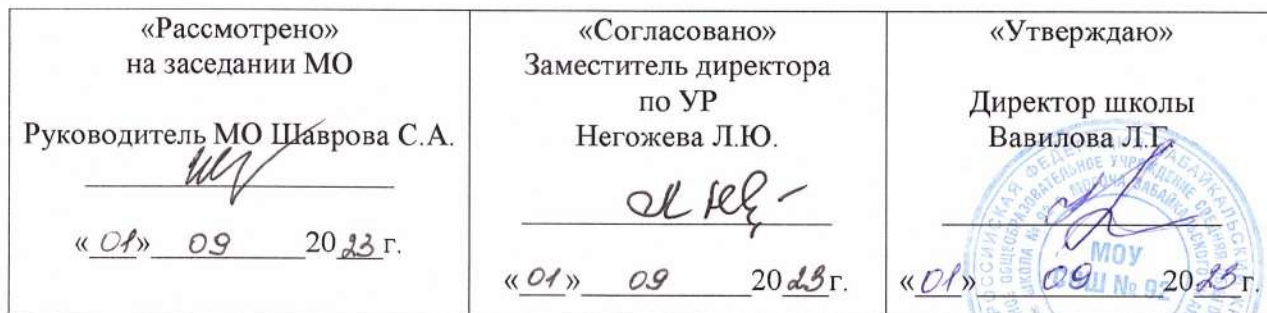 «Рассмотрено»
на заседании МО
Руководитель МО Шаврова С.А.
«01» 09 2023 г.
«Согласовано»
Заместитель директора
по УР
Негожева Л.Ю.
«01» 09 2023г.
«Утверждаю»
Директор школы
Вавилова Л.Г.
«01» 09 2023 г.
МОУ
СОШ № 92